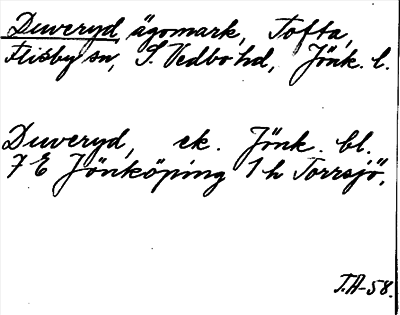 Duveryd ägomark, Tofta,
Flisby sn, S. Vedbo hd, Jönk. l.
Duveryd, ek. Jönk. bl.
7 E Jönköping 1 h Torrsjö.
T.A-58.